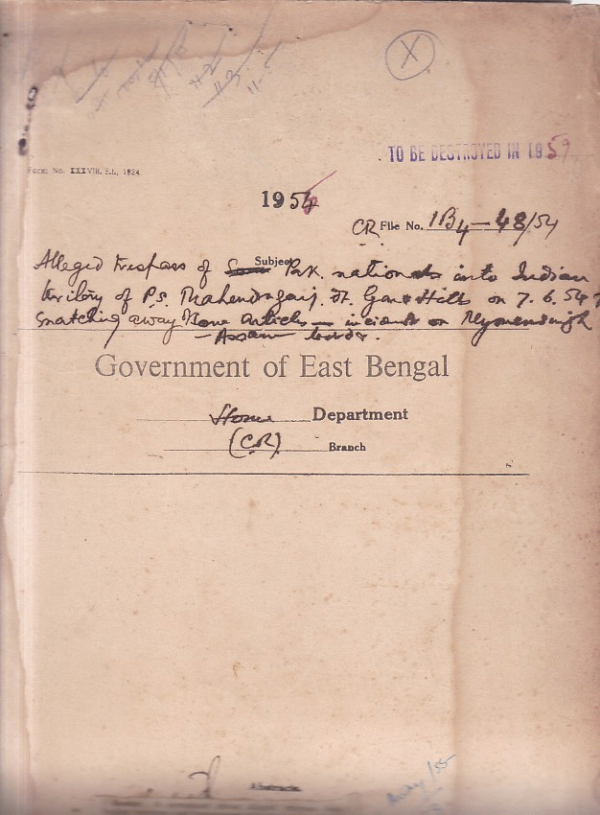 TO BE DESTROYED IN 1959
Form No. XXXVIII. E.I., 1924.
1954
CR File No. 1B4-48/54
Subject
Alleged trespass of Pak. nationals into Indian
teritory of P.S. Mahendraganj, dt. Garo Hill on 7.6.54 &
snatching away some articles — incident on Mymensingh
- Assam border.
Government of East Bengal
Home Department
(CR) Branch
Abstracts.